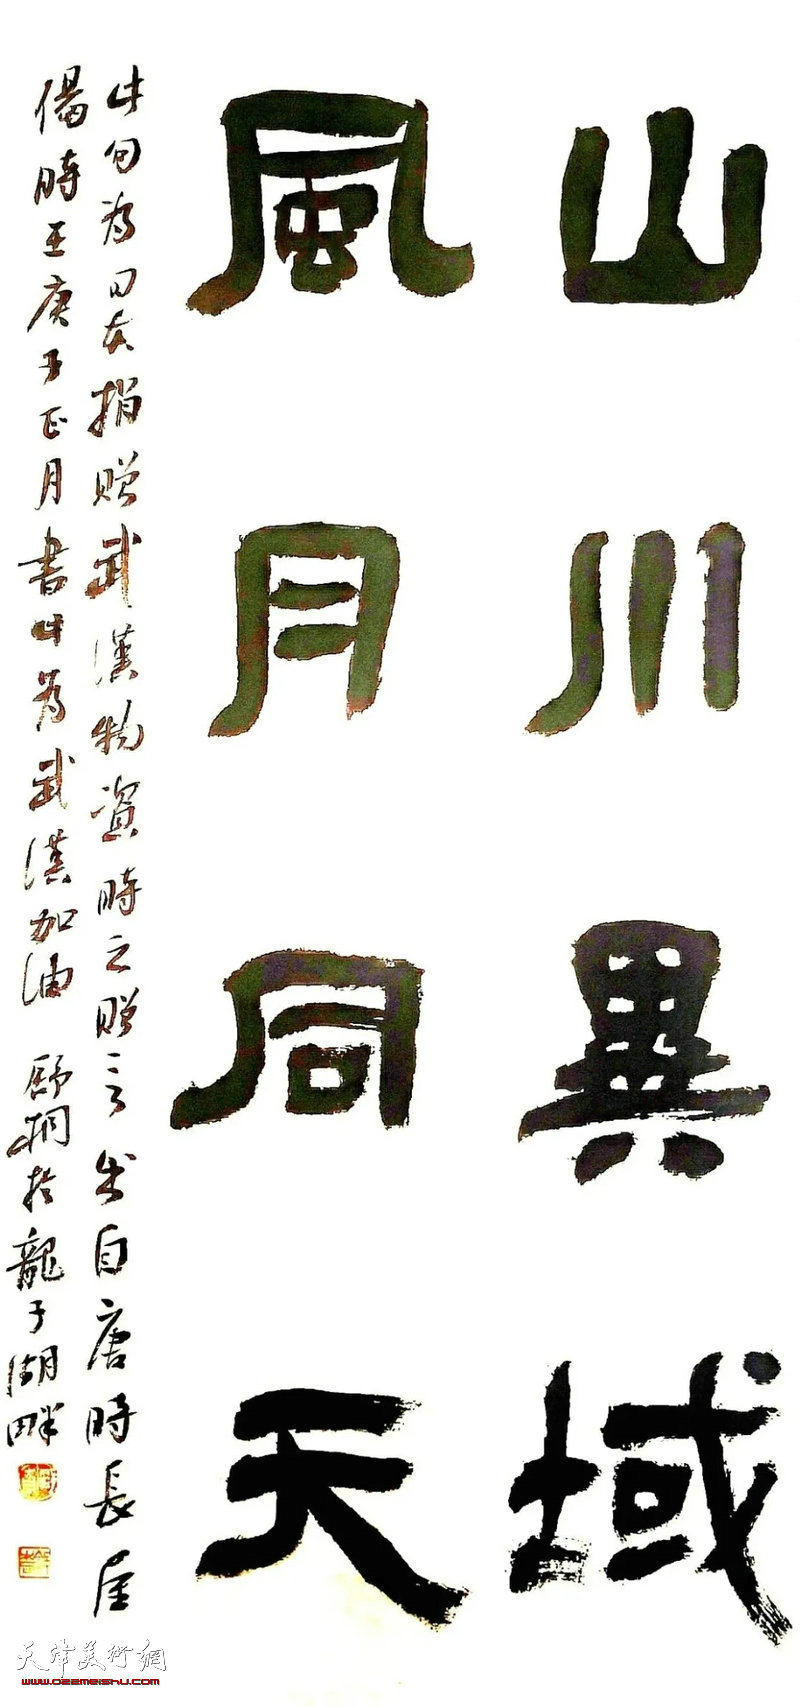 山川異域
風月同天
此句為日本捐贈武漢物資時之贈言出自唐時長屋
偈時王庚子正月書此為武漢加油 舒桐於龍子湖畔
天津美術網
www.022meishu.com